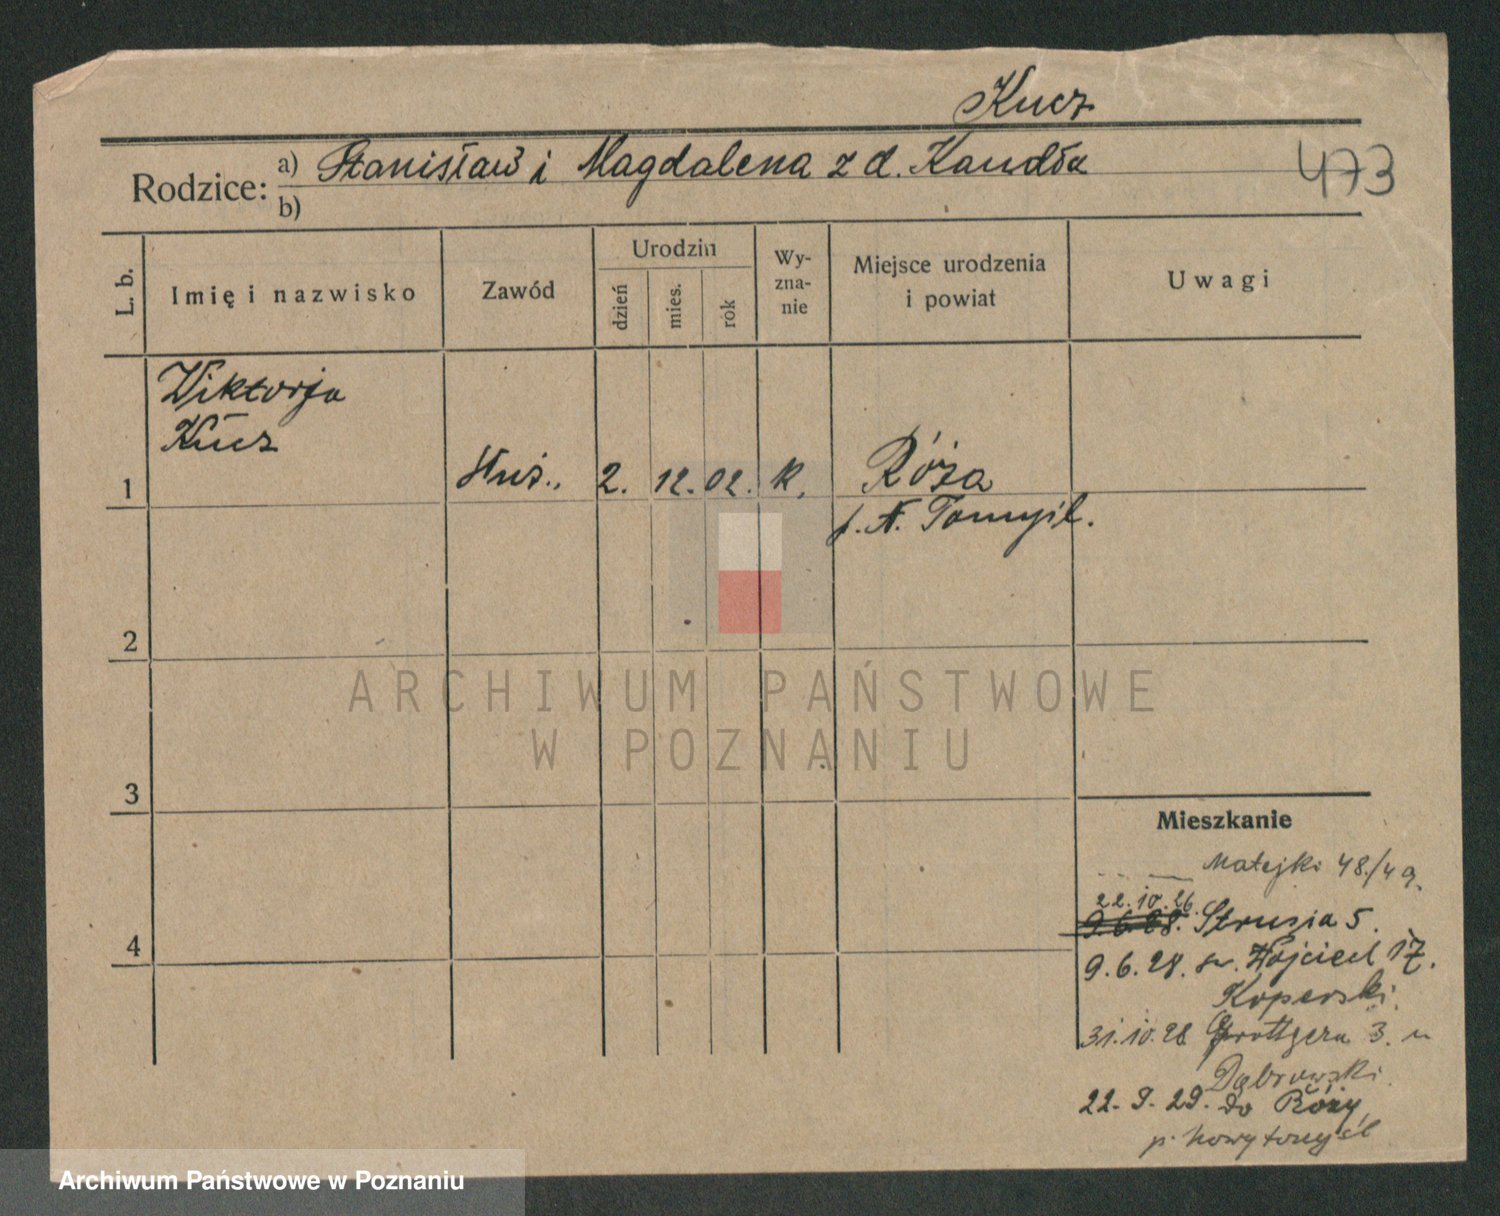 Kucz
Rodzice: a) Stanisław i Magdalena z d. Kandła
b)
473
L. b.
Imię i nazwisko
Zawód
Urodzin
dzień
mies.
rok
Wy-
zna-
nie
Miejsce urodzenia
i powiat
Uwagi
Wiktorja
Kucz
1 Służ. 2. 12. 02. k. Róża
p. N. Tomyśl.
2
3
4
ARCHIWUM PAŃSTWOWE
W POZNANIU
Mieszkanie
Matejki 48/49.
22.10.26.
9.6.28. Strusia 5.
9.6.28. św. Wojciech 17.
Koperski.
31.10.28 Grottgera 3. u
Dąbrowski.
22.9.29. do Róży
p. Nowytomyśl
Archiwum Państwowe w Poznaniu